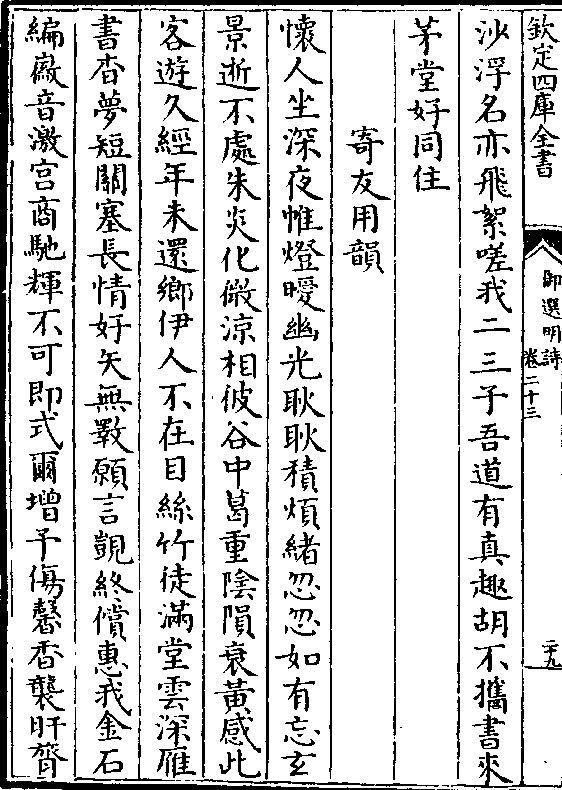 欽定四庫全書
御選明詩
卷二十三
二九
沙浮名亦飛絮嗟我二三子吾道有真趣胡不攜書來
茅堂好同住
寄友用韻
懷人坐深夜帷燈曖幽光耿耿積煩緒忽忽如有忘玄
景逝不處朱炎化微涼相彼谷中葛重陰隕衰黃感此
客遊久經年未還鄉伊人不在目絲竹徒滿堂雲深雁
書杳夢短關塞長情好矢無斁願言覬終償惠我金石
編厳音激宮商馳輝不可即式爾增予傷馨香襲肝膂